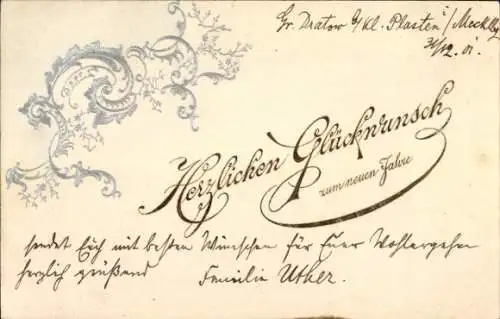 Gr. Dratow b/ Kl. Plasten i/Mecklbg
31/12. 01.
Herzlichen Glückwunsch
zum neuen Jahre
sendet Euch mit besten Wünschen für Euer Wohlergehn
herzlich grüßend Familie Uther.